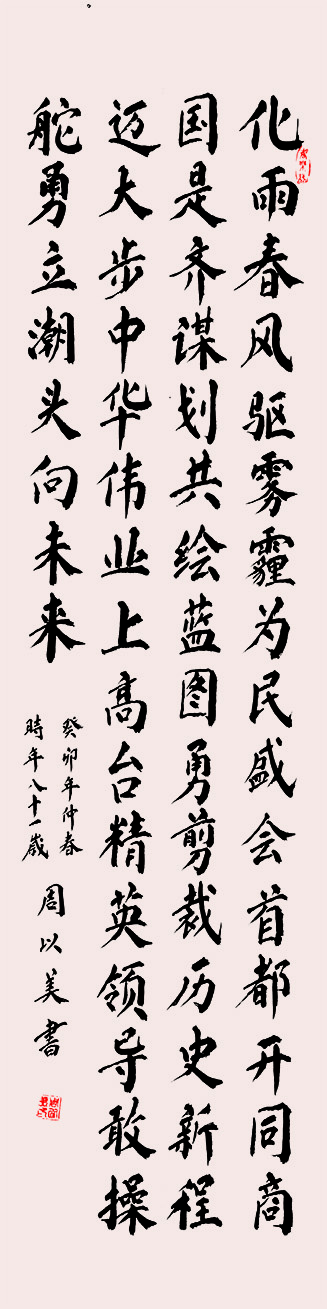 化雨春风驱雾霾为民盛会首都开同商
国是齐谋划共绘蓝图勇剪裁历史新程
迈大步中华伟业上高台精英领导敢操
舵勇立潮头向未来
癸卯年仲春
時年八十一歲
周以美書